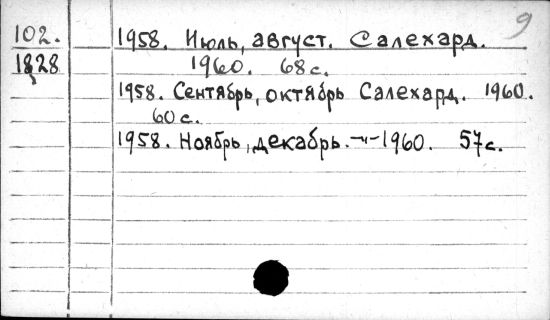 9
102. 1958. Июль, август. Салехард.
1828 1960. 68с.
1958. Сентябрь, октябрь Салехард. 1960.
60с.
1958. Ноябрь, декабрь. –"– 1960. 57с.